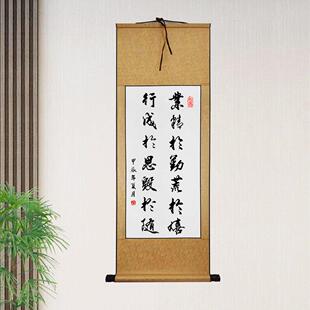 業精於勤荒於嬉
行成於思毀於隨
甲辰年夏月